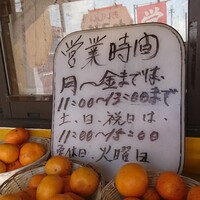 営業時間
月～金までは、
11:00～13:00まで
土、日、祝日は、
11:00～15:00
定休日、火曜日